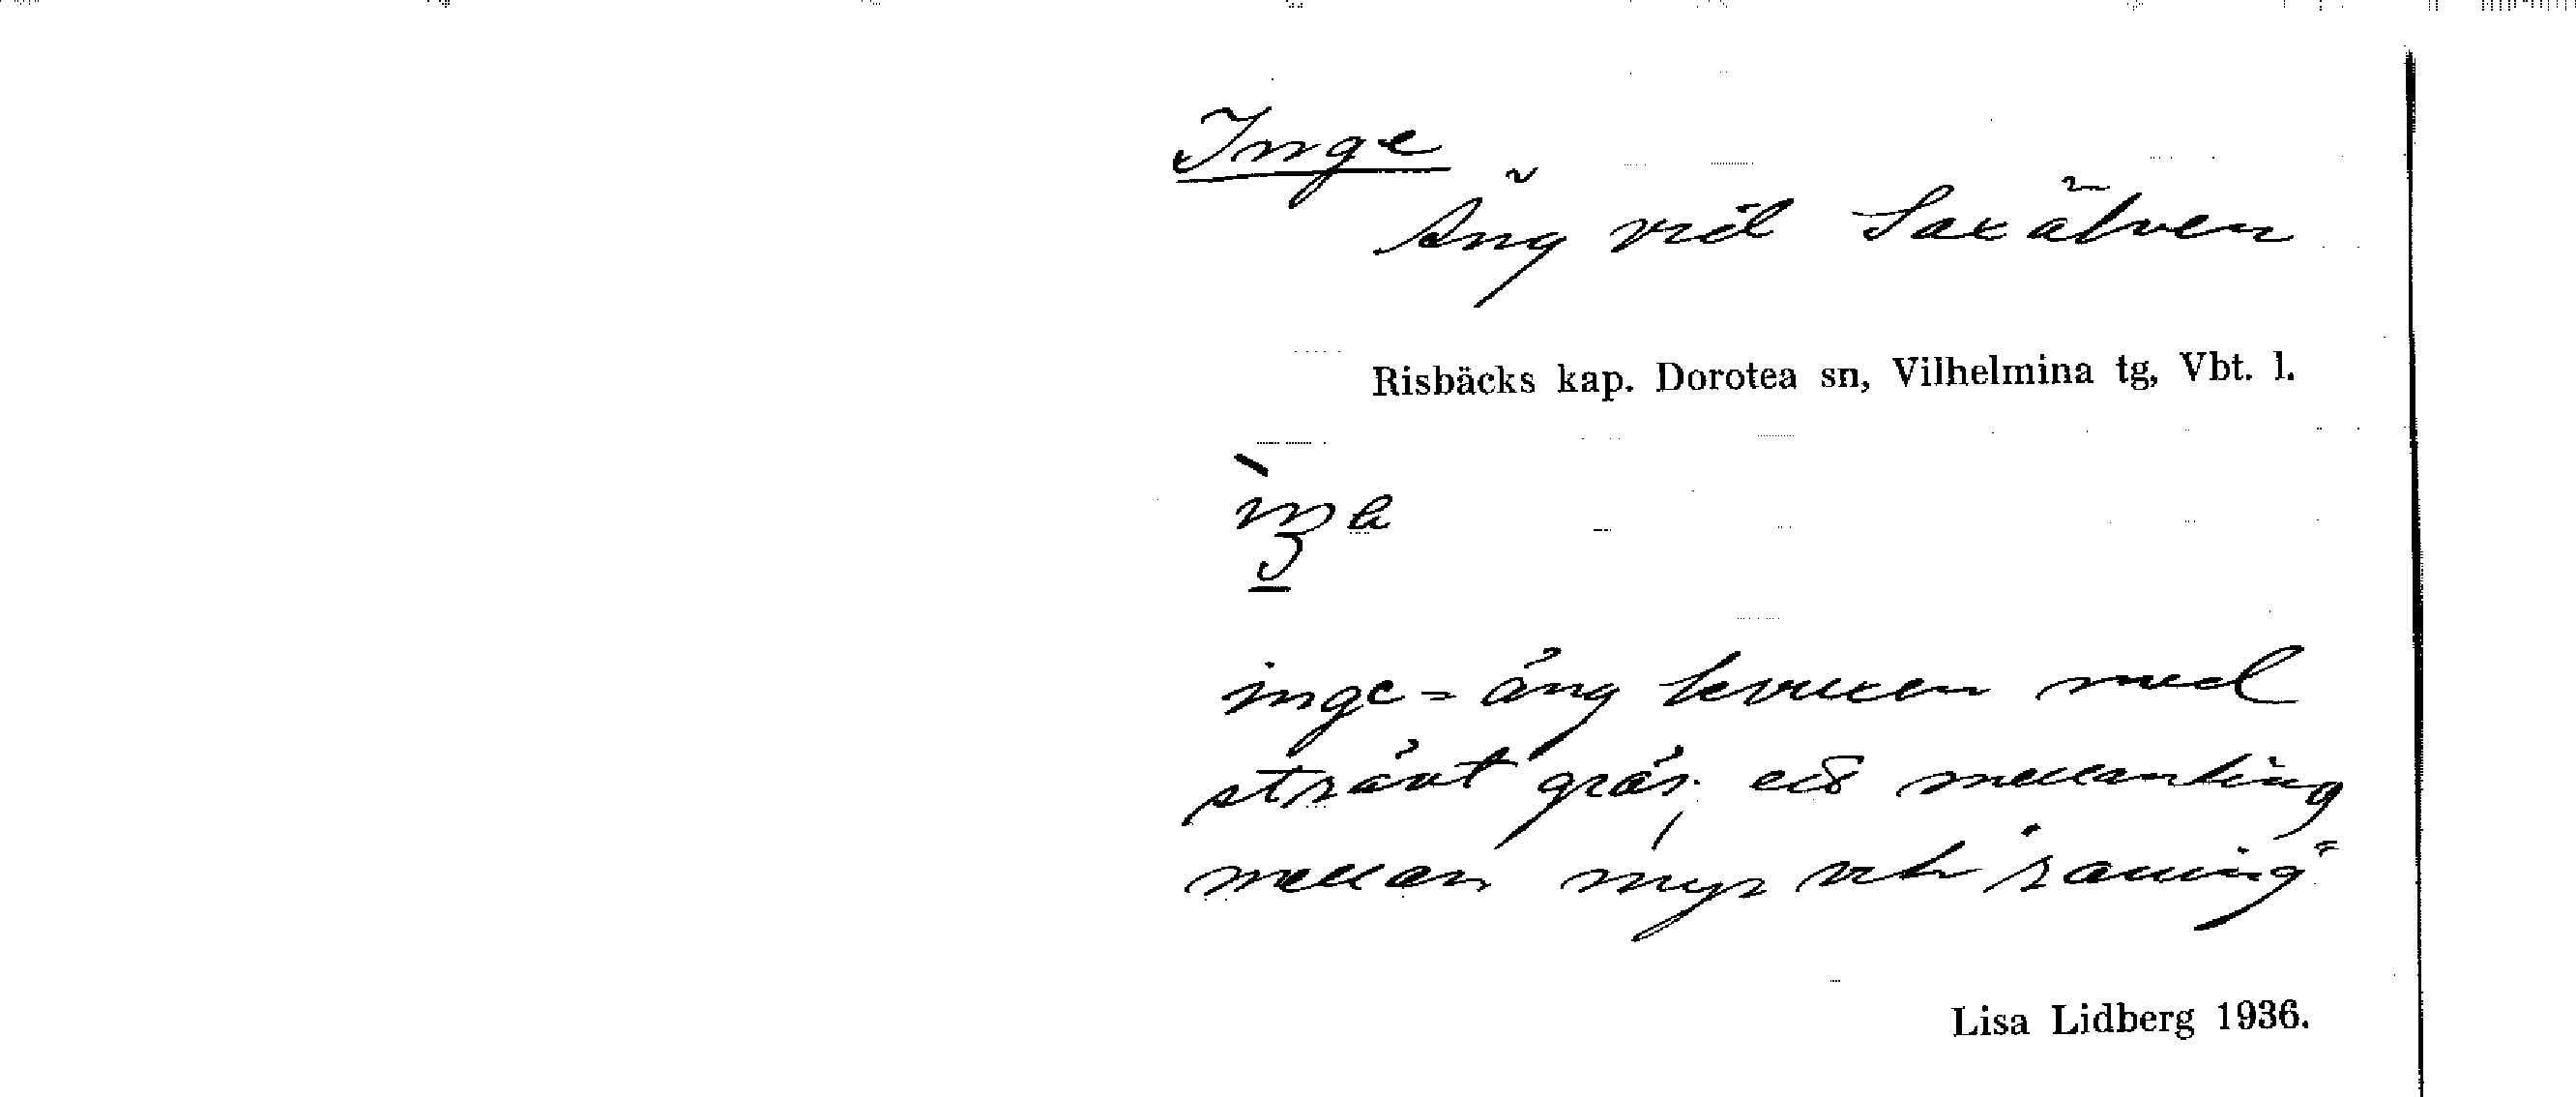 Inge
Äng vid Saxälven
Risbäcks kap. Dorotea sn, Vilhelmina tg, Vbt. l.
inge = äng bevuxen med
strävt gräs; ett mellanting
mellan myr och raning"
Lisa Lidberg 1936.